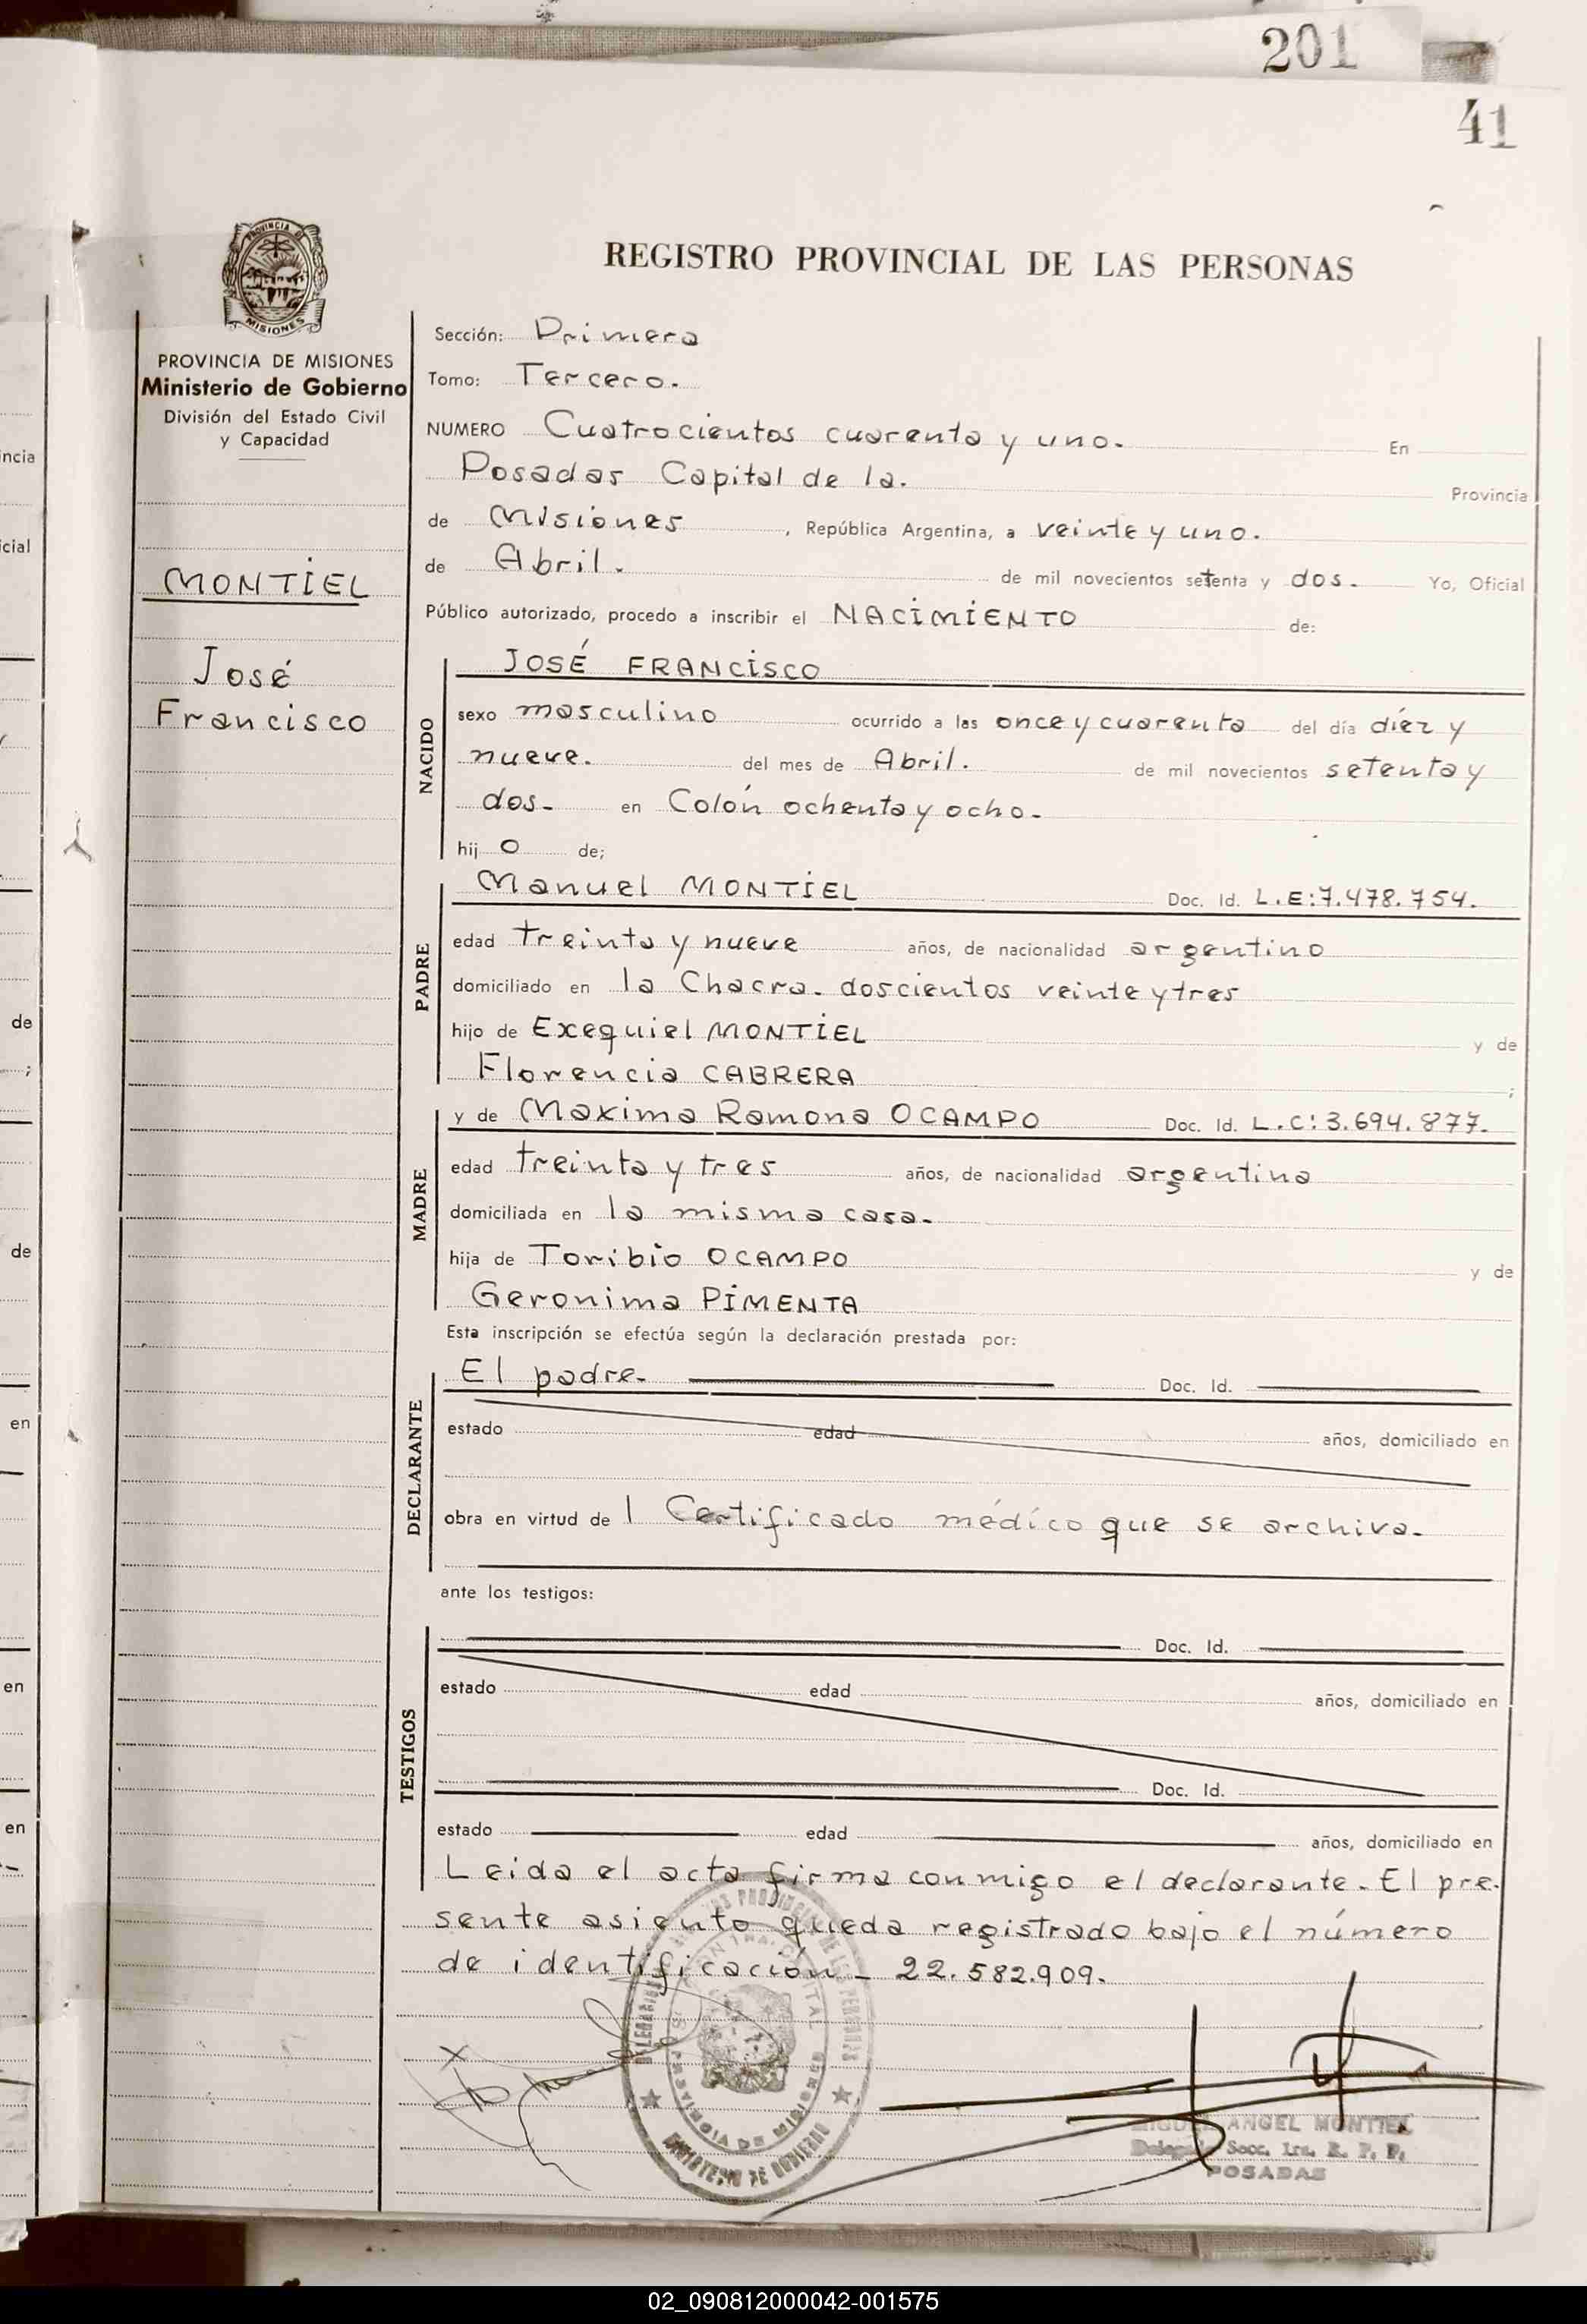 201
41
PROVINCIA DE
MISIONES
PROVINCIA DE MISIONES
Ministerio de Gobierno
División del Estado Civil
y Capacidad
MONTIEL
José
Francisco
REGISTRO PROVINCIAL DE LAS PERSONAS
Sección: Primera
Tomo: Tercero.
NUMERO Cuatrocientos cuarenta y uno. En
Posadas Capital de la. Provincia
de Misiones, República Argentina, a veinte y uno.
de Abril. de mil novecientos setenta y dos. Yo, Oficial
Público autorizado, procedo a inscribir el NACIMIENTO de:
NACIDO
JOSÉ FRANCISCO
sexo masculino ocurrido a las once y cuarenta del día díez y
nueve. del mes de Abril. de mil novecientos setenta y
dos- en Colón ochenta y ocho-
hij o de;
PADRE
Manuel MONTIEL Doc. Id. L.E:7.478.754.
edad treinta y nueve años, de nacionalidad argentino
domiciliado en la Chacra. doscientos veinte y tres
hijo de Exequiel MONTIEL y de
Florencia CABRERA ;
MADRE
y de Maxima Ramona OCAMPO Doc. Id. L.C:3.694.877.
edad treinta y tres años, de nacionalidad argentina
domiciliada en la misma casa.
hija de Toribio OCAMPO y de
Geronima PIMENTA
Esta inscripción se efectúa según la declaración prestada por:
DECLARANTE
El padre. Doc. Id.
estado edad años, domiciliado en
obra en virtud de 1 Certificado médico que se archiva.
ante los testigos:
TESTIGOS
Doc. Id.
estado edad años, domiciliado en
Doc. Id.
estado edad años, domiciliado en
Leida el acta firma conmigo el declarante. El pre-
sente asiento queda registrado bajo el número
de identificación - 22.582.909.
PROVINCIA DE MISIONES
MINISTERIO DE GOBIERNO
MIGUEL ANGEL MONTIEL
Delegado Secc. 1ra. R. P. P.
POSADAS
incia
icial
de
de
en
en
en
02_090812000042-001575